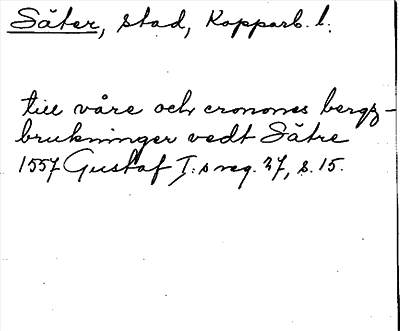 Säter, stad, Kopparb. l.
till våre och cronones bergz-
brukninger vedt Sätre
1557 Gustaf I:s reg. 27, s. 15.